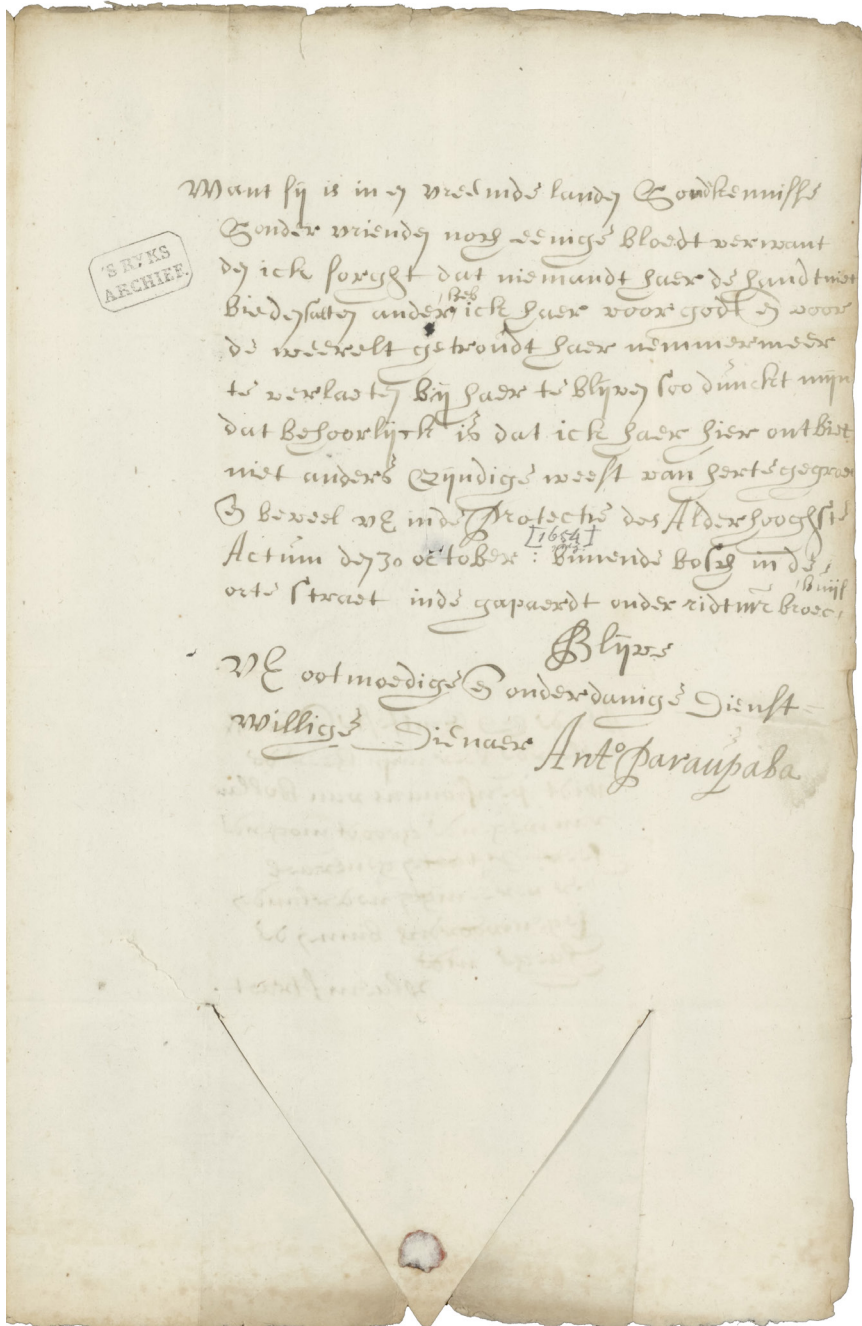 Want sij is in en vreemde landen Sond kennisse
Sonder vrienden noch eenige bloedt verwant
den ick sorght dat niemandt haer de handt niet
bieden sallen ander heb ick haer voor godt en voor
de weerelt getroudt haer nemmermeer
te verlaeten bij haer te blijven soo dunckt mijn
'S RYKS
ARCHIEF.
dat behoorlijck is dat ick haer hier ontbiet
niet anders Eijndige weest van herte gegroet
En beveel vE inde Protectie des Alderhooghste
[1654]
Actum den 30 october : binnende bosch in de
orte straet inde gapaerdt onder ridtmr broec
Blijve
VE ootmoedige En onderdanige Dienst
willige Dienaer Anto Paraupaba